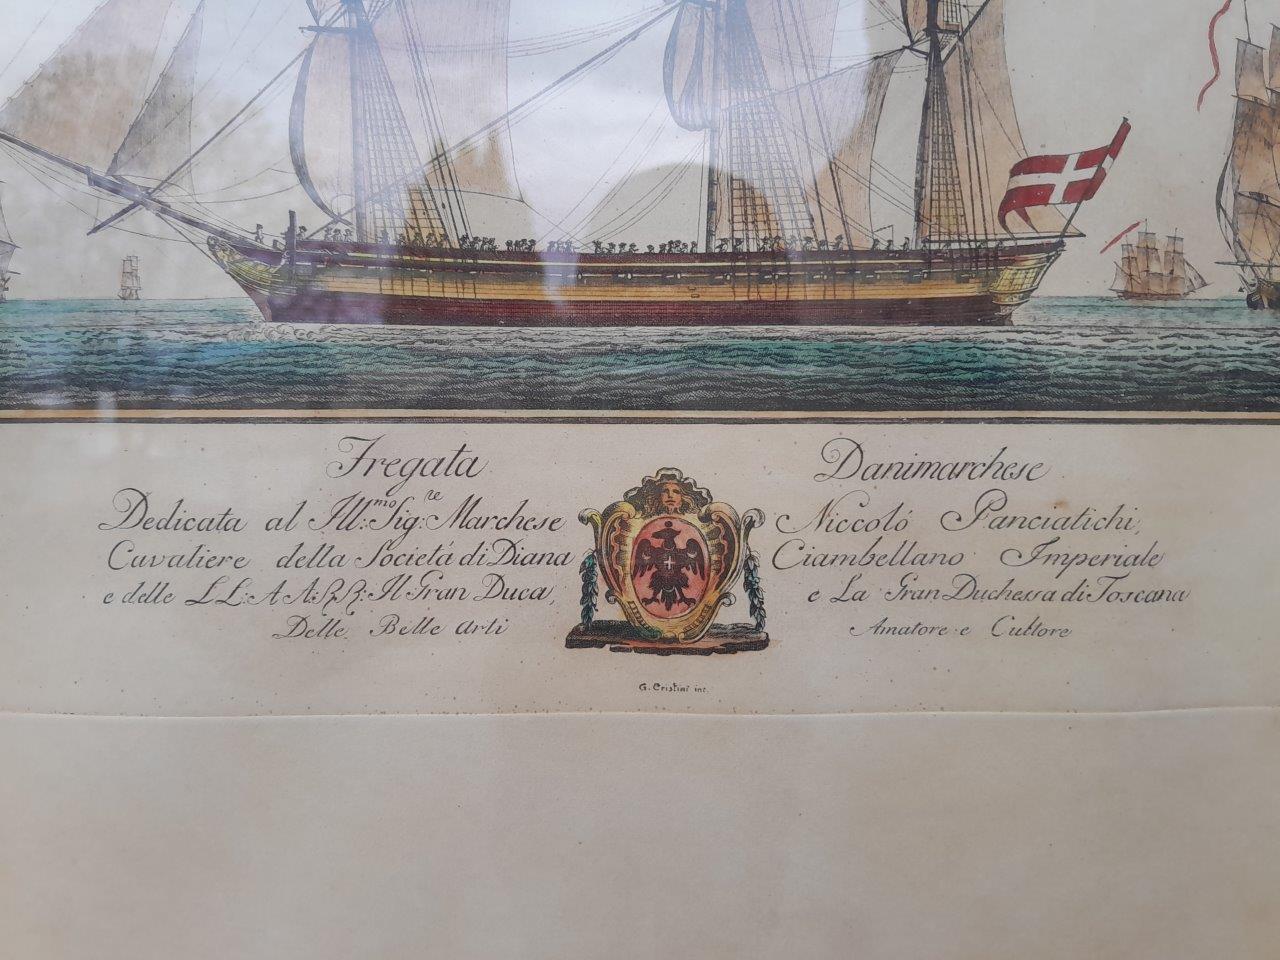 Fregata Danimarchese
Dedicata al Ill:mo Sig:re Marchese Niccoló Panciatichi,
Cavaliere della Societá di Diana Ciambellano Imperiale
e delle LL: AA: RR: Il Gran Duca, e La Gran Duchessa di Toscana
Delle Belle Arti Amatore e Cultore
G. Cristini inc.